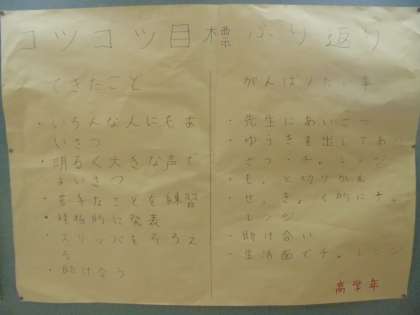 コツコツ目標ふり返り
できたこと
・いろんな人にもあ
いさつ
・明るく大きな声で
あいさつ
・苦手なことを練習
・積極的に発表
・スリッパをそろえ
る
・助けあう
がんばりたい事
・先生にあいさつ
・ゆうきを出してあ
さつ チャレンジ
・もっと切りかえ
・せっきょく的にチャ
レンジ
・助け合い
・生活面でチャレンジ
高学年